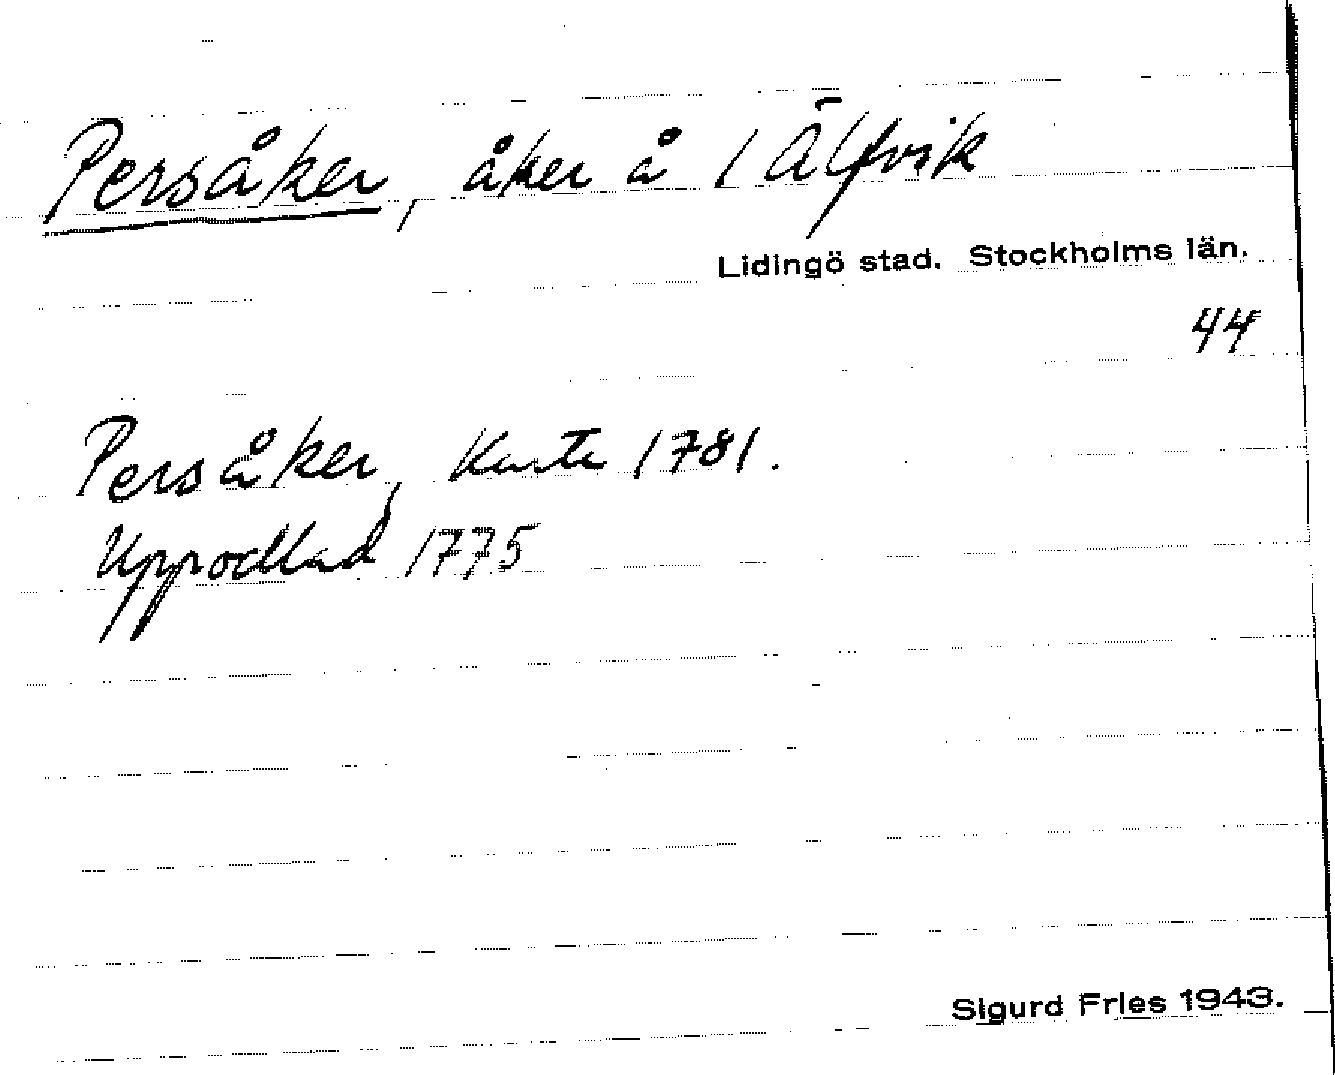 Persåker, åker å 1 Älfvik
Lidingö stad. Stockholms län.
44
Persåker, Karta 1781.
Uppodlad 1775
Sigurd Fries 1943.